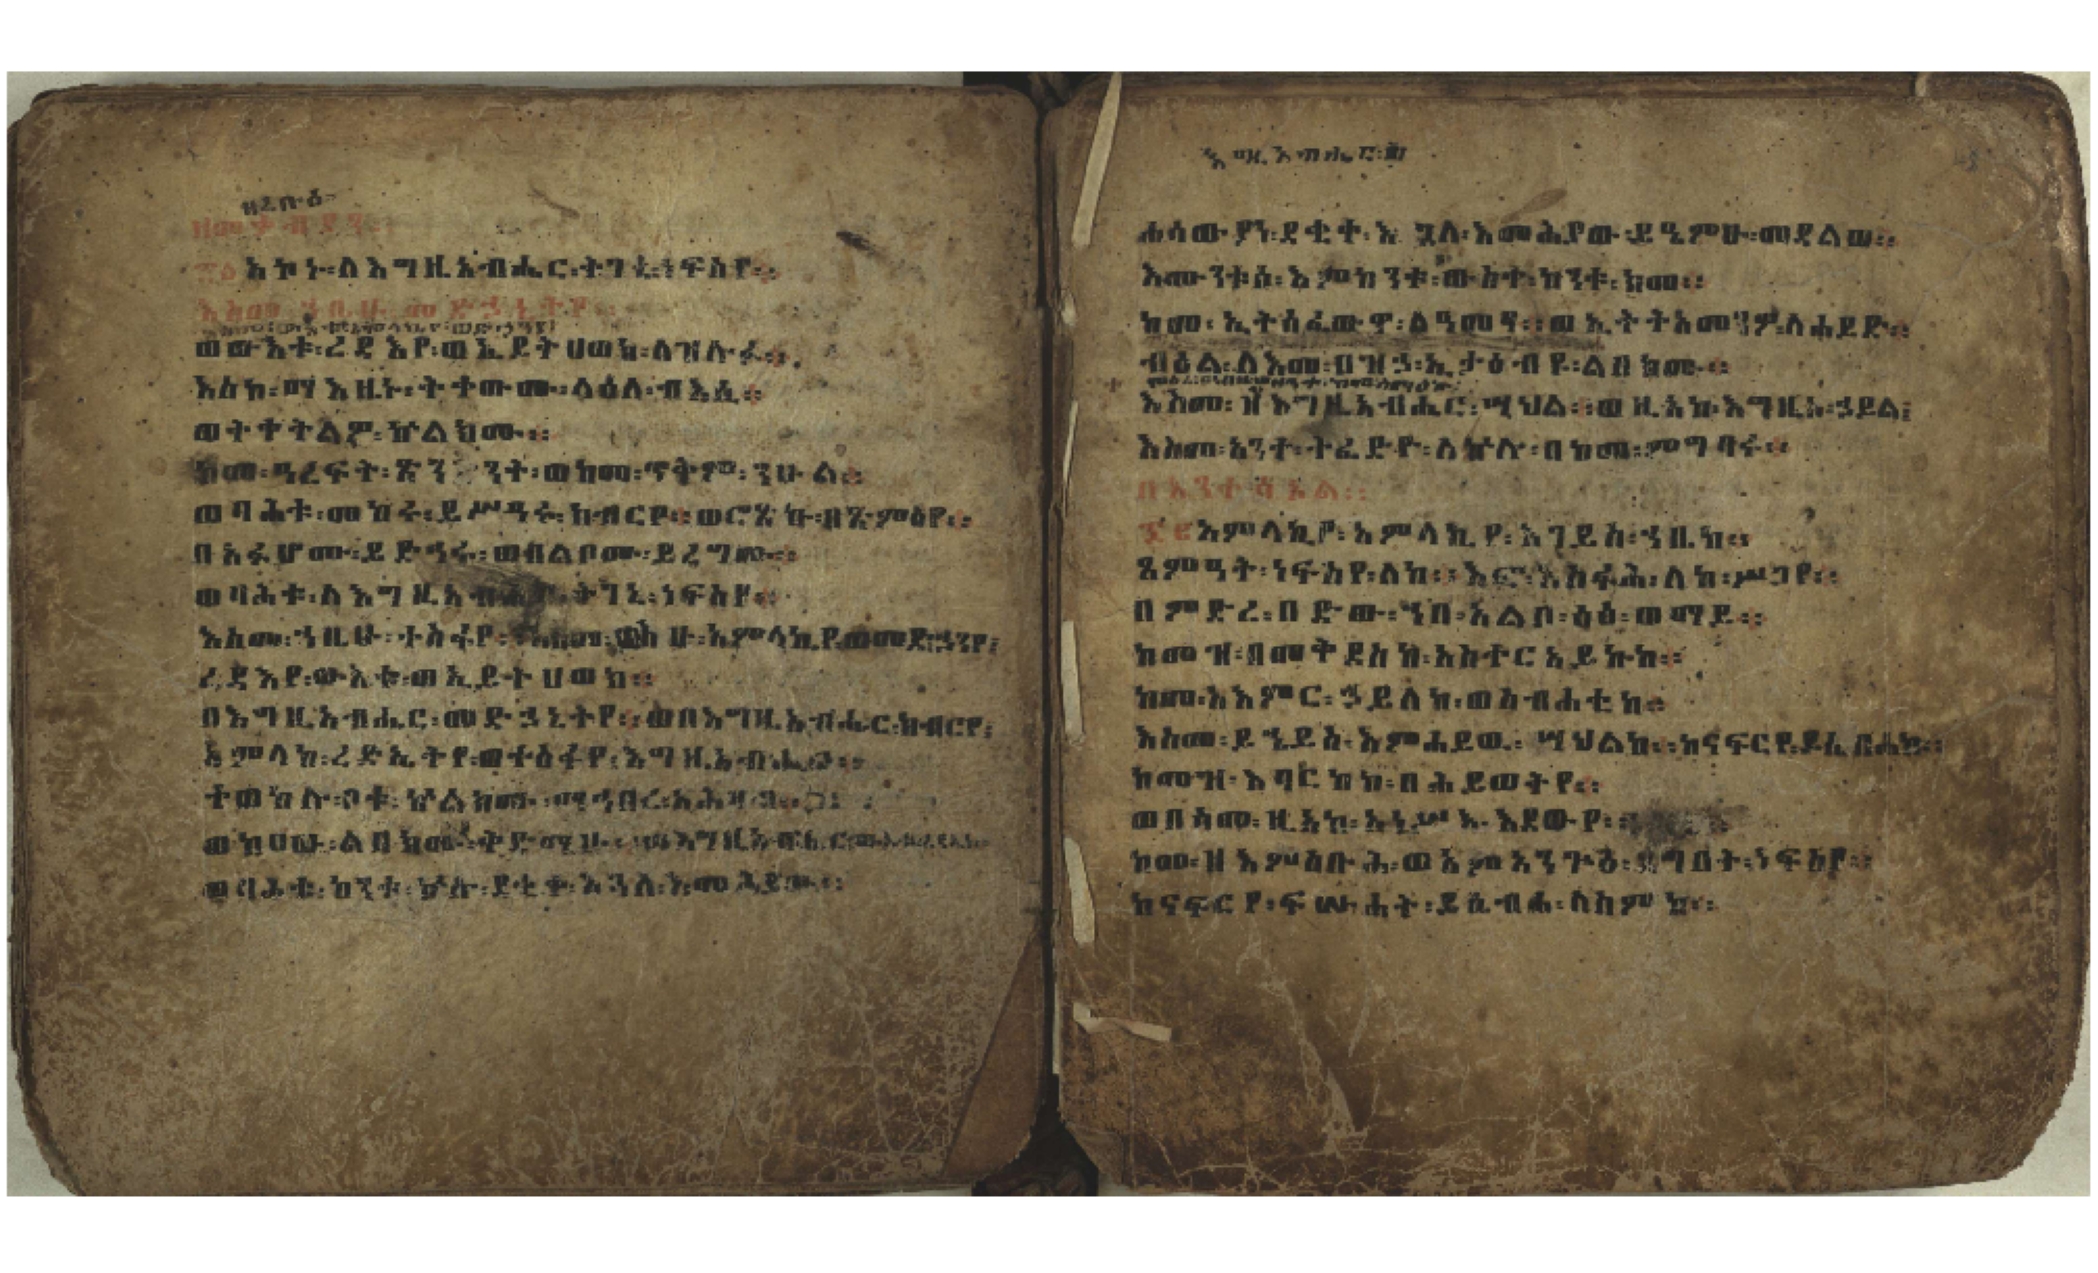 አኮኑ፡ለእግዚአብሔር፡ትገኒ፡ነፍስየ።
እስመ፡ኀቤሁ፡መድኃኒትየ።
ወውእቱ፡ረዳእየ፡ወኢይትሀወክ፡ለዝሉፉ።
እስከ፡ማእዜኑ፡ትቀውሙ፡ላዕለ፡ብእሲ።
ወትቀትልዎ፡ኵልክሙ።
ከመ፡ዓረፍት፡ጽንንት፡ወከመ፡ጥቅም፡ንሁል።
ወባሕቱ፡መከሩ፡ይሥዓሩ፡ክብርየ።ወሮጽኩ፡በጽምዕየ።
በአፉሆሙ፡ይድኅሩ፡ወበልቦሙ፡ይረግሙ።
ወባሕቱ፡ለእግዚአብሔር፡ትገኒ፡ነፍስየ።
እስመ፡ኀቤሁ፡ተስፋየ።እስመ፡ውእቱ፡አምላኪየ፡ወመድኃንየ፤
ረዳእየ፡ውእቱ፡ወኢይትሀወክ።
በእግዚአብሔር፡መድኃኒትየ።ወበእግዚአብሔር፡ክብርየ፤
አምላከ፡ረድኤትየ፡ወተስፋየ፡እግዚአብሔር።
ተወከሉ፡ቦቱ፡ኵልክሙ፡
ወከዐው፡ልበክሙ፡ቅድሜሁ።
ወባሕቱ፡ከንቱ፡ኵሉ፡ደቂቀ፡እጓለ፡እመሕያው።
ሐሳውያን፡ደቂቀ፡እጓለ፡እመሕያው፡ይዔምፁ፡መዳልወ።
እሙንቱሰ፡እምከንቱ፡ውስተ፡ከንቱ፡ከመ።
ከመ፡ኢትሰፈውዋ፡ለዓመፃ።ወኢትትአመንዎ፡ለሐይድ።
ብዕል፡ለእመ፡በዝኃ፡ኢታዕብዩ፡ልበክሙ።
እስመ፡ዝእግዚአብሔር፡ሣህል።ወዚአከ፡እግዚኦ፡ኃይል፤
እስመ፡አንተ፡ትፈድዮ፡ለኵሉ፡በከመ፡ምግባሩ።
፷፪ አምላኪየ፡አምላኪየ፡እገይስ፡ኀቤከ።
ጸምዓት፡ነፍስየ፡ለከ።እፎ፡እስፋሕ፡ለከ፡ሥጋየ።
በምድረ፡በድው፡ኀበ፡አልቦ፡ዕፅ፡ወማይ።
ከመዝ፡በመቅደስከ፡አስተርአይኩከ።
ከመ፡አእምር፡ኃይለከ፡ወስብሐቲከ።
እስመ፡ይኄይስ፡እምሐይው፡ሣህልከ።ከናፍርየ፡ይሴብሐከ።
ከመዝ፡እባርከከ፡በሕይወትየ።
ወበስመ፡ዚአከ፡አነሥእ፡እደውየ።
ከመ፡ዘእምዕቡሕ፡ወእምአንጕዕ፡ጸግበት፡ነፍስየ።
ከናፍርየ፡ፍሡሓት፡ይሴብሐ፡ለስምከ።